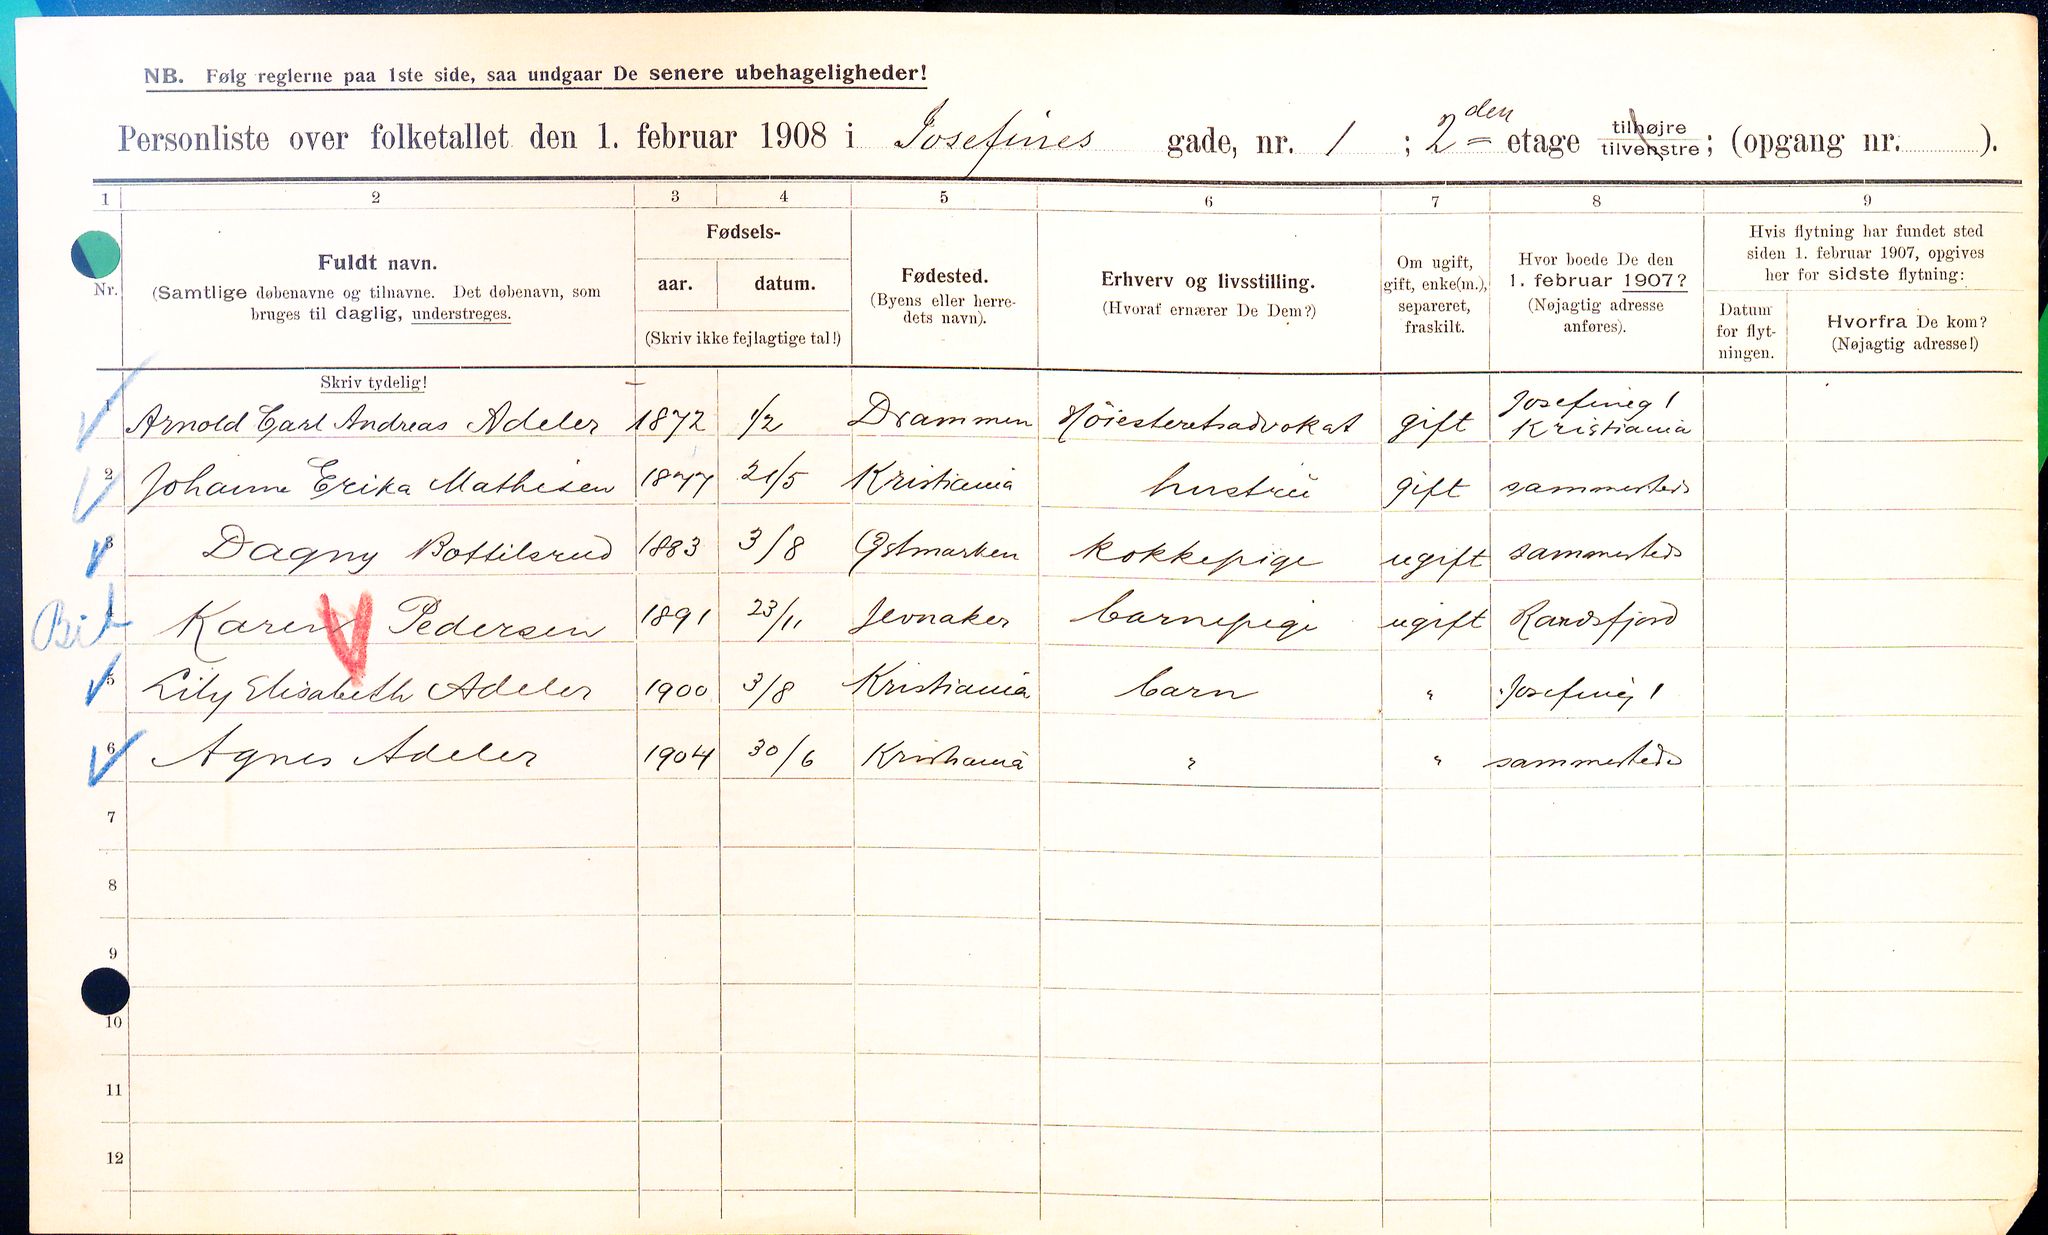 NB. Følg reglerne paa 1ste side, saa undgaar De senere ubehageligheder!
Personliste over folketallet den 1. februar 1908 i Josefines gade, nr. 1 ; 2den etage tilhøjre tilvenstre ; (opgang nr. ).
1 2 3 4 5 6 7 8 9
Nr.
Fuldt navn.
(Samtlige døbenavne og tilnavne. Det døbenavn, som
bruges til daglig, understreges.
Skriv tydelig!
Fødsels-
aar. datum.
(Skriv ikke fejlagtige tal!)
Fødested.
(Byens eller herre-
dets navn).
Erhverv og livsstilling.
(Hvoraf ernærer De Dem?)
Om ugift,
gift, enke(m.),
separeret,
fraskilt.
Hvor boede De den
1. februar 1907?
(Nøjagtig adresse
anføres).
Hvis flytning har fundet sted
siden 1. februar 1907, opgives
her for sidste flytning:
Datum
for flyt-
ningen.
Hvorfra De kom?
(Nøjagtig adresse!)
1 Arnold Carl Andreas Adeler 1872 1/2 Drammen Höiesteretsadvokat gift Josefineg 1 Kristiania
2 Johanne Erika Mathisen 1877 21/5 Kristiania hustru gift sammesteds
3 Dagny Bottilsrud 1883 3/8 Østmarken kokkepige ugift sammesteds
Bit 4 Karen Pedersen 1891 23/11 Jevnaker barnepige ugift Randsfjord
5 Lily Elisabeth Adeler 1900 3/8 Kristiania barn " Josefineg 1
6 Agnes Adeler 1904 30/6 Kristiania " " sammesteds
7
8
9
10
11
12